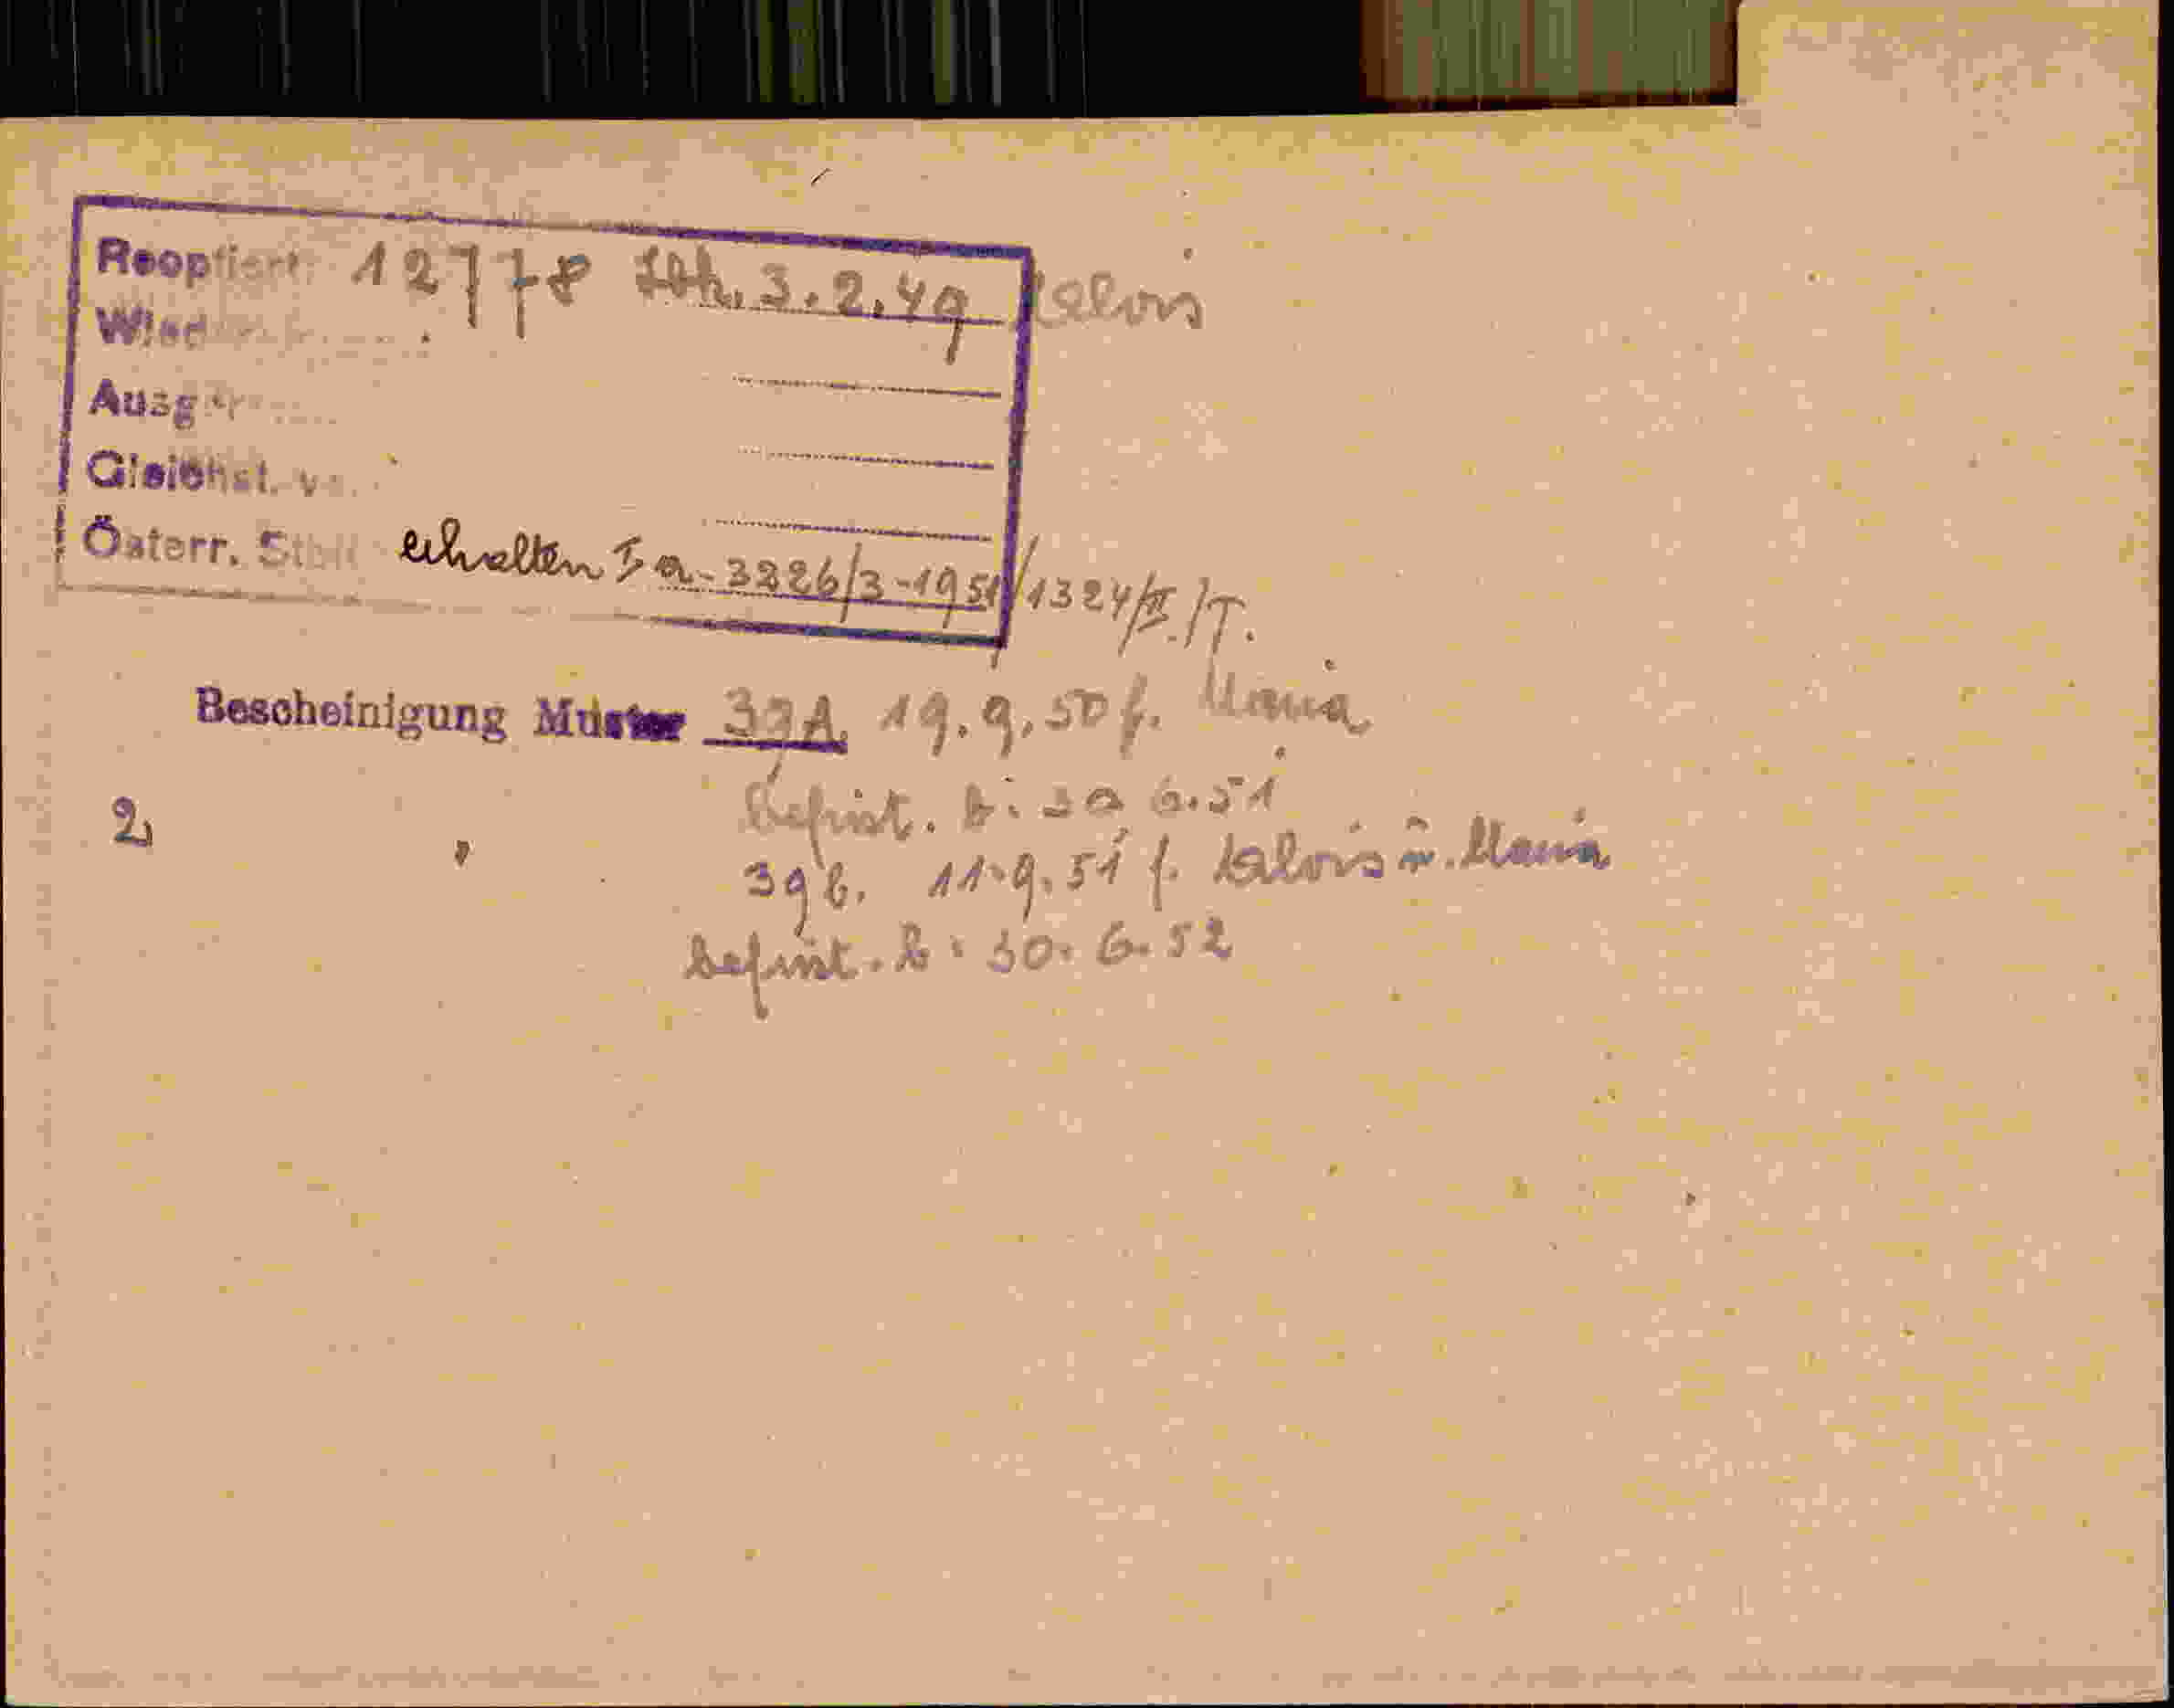 Reoptiert: 12778 Ibk. 3.2.49 Alois
Wied
Ausg
Gleichst. v
Österr. Stb erhalten Ia-3226/3-1951/1324/II./T.
Bescheinigung Muster 39A. 19.9.50 f. Maria
befrist. b: 30 6.51
2,
39b. 11.9.51 f. Alois u. Maria
befrist. b: 30. 6. 52